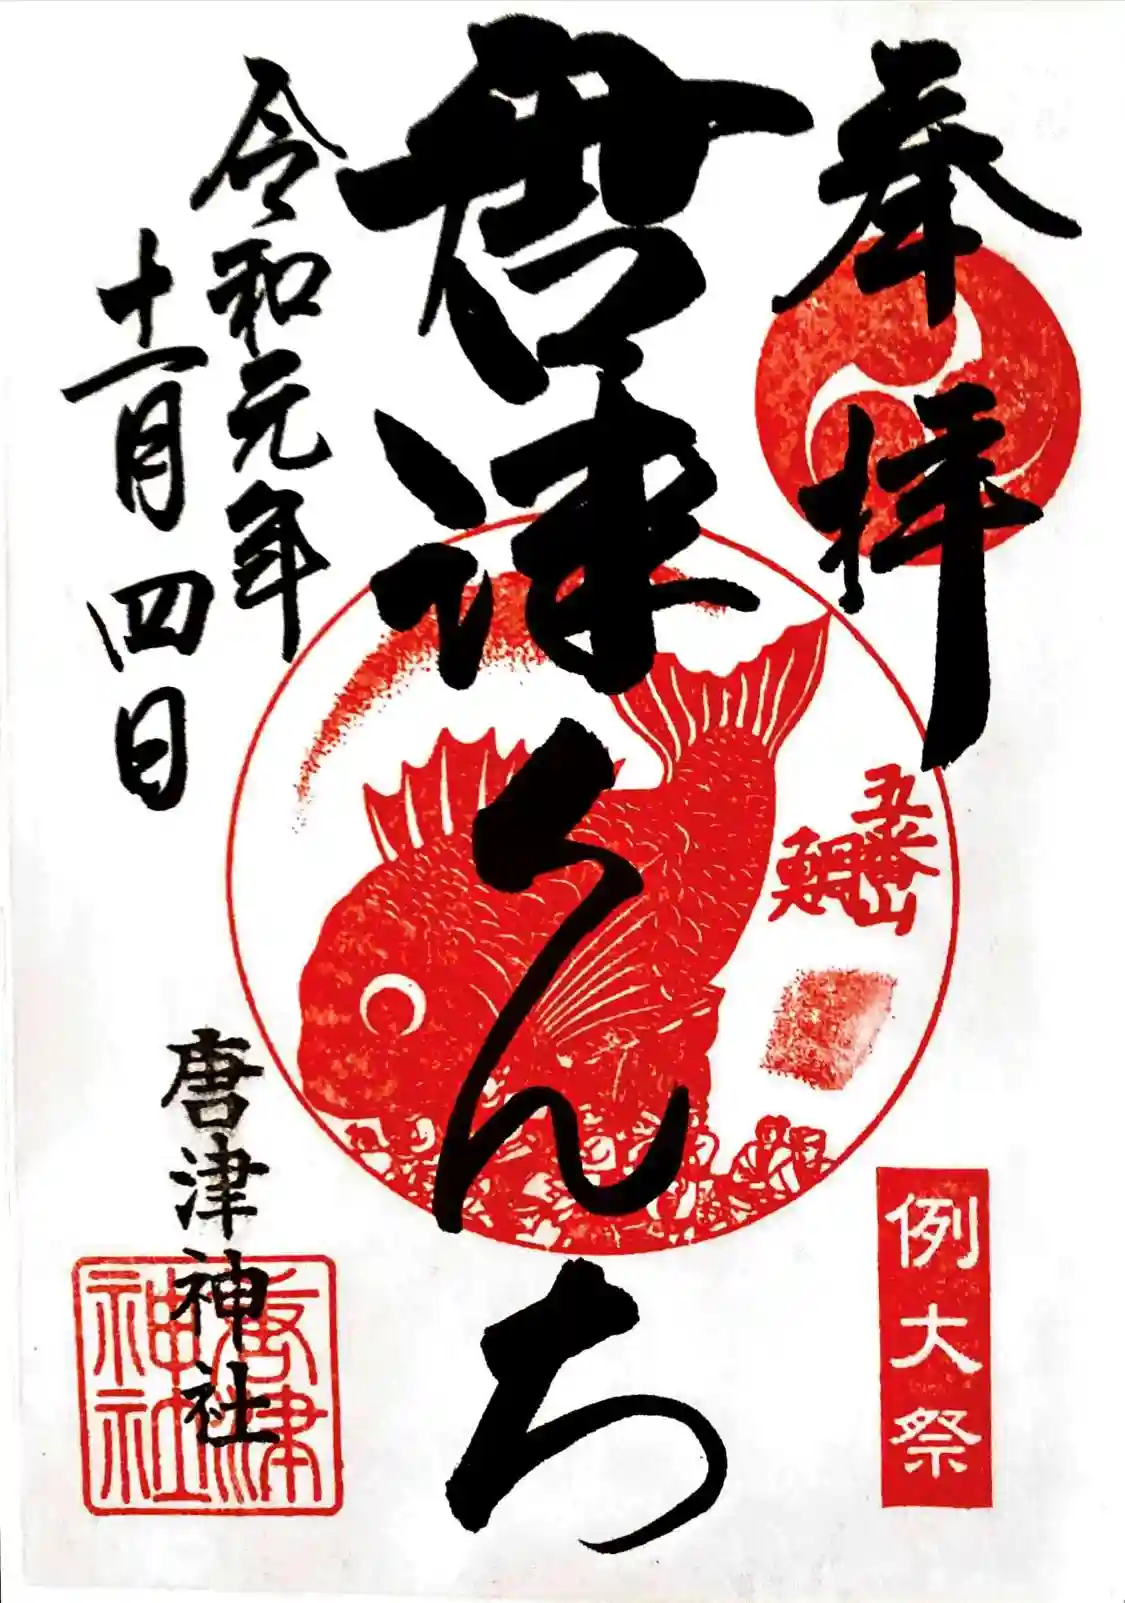 奉拝
唐津くんち
令和元年
十一月四日
五番山
鯛
例大祭
唐津神社
唐津
神社